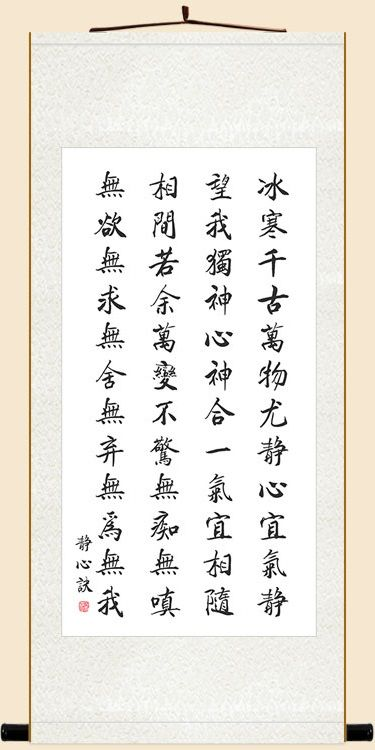 冰寒千古萬物尤静心宜氣静
望我獨神心神合一氣宜相隨
相間若余萬變不驚無痴無嗔
無欲無求無舍無弃無爲無我
静心訣